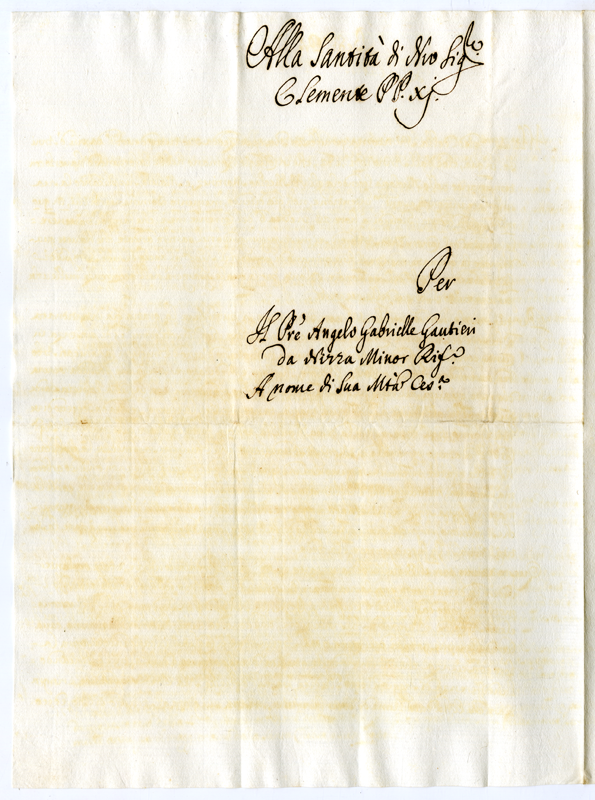 Alla Santità di Nro Sig.re
Clemente PP. xj.
Per
Il Prē Angelo Gabrielle Gautieri
da Nizza Minor Rif.o
A nome di Sua Mtà Ces.a